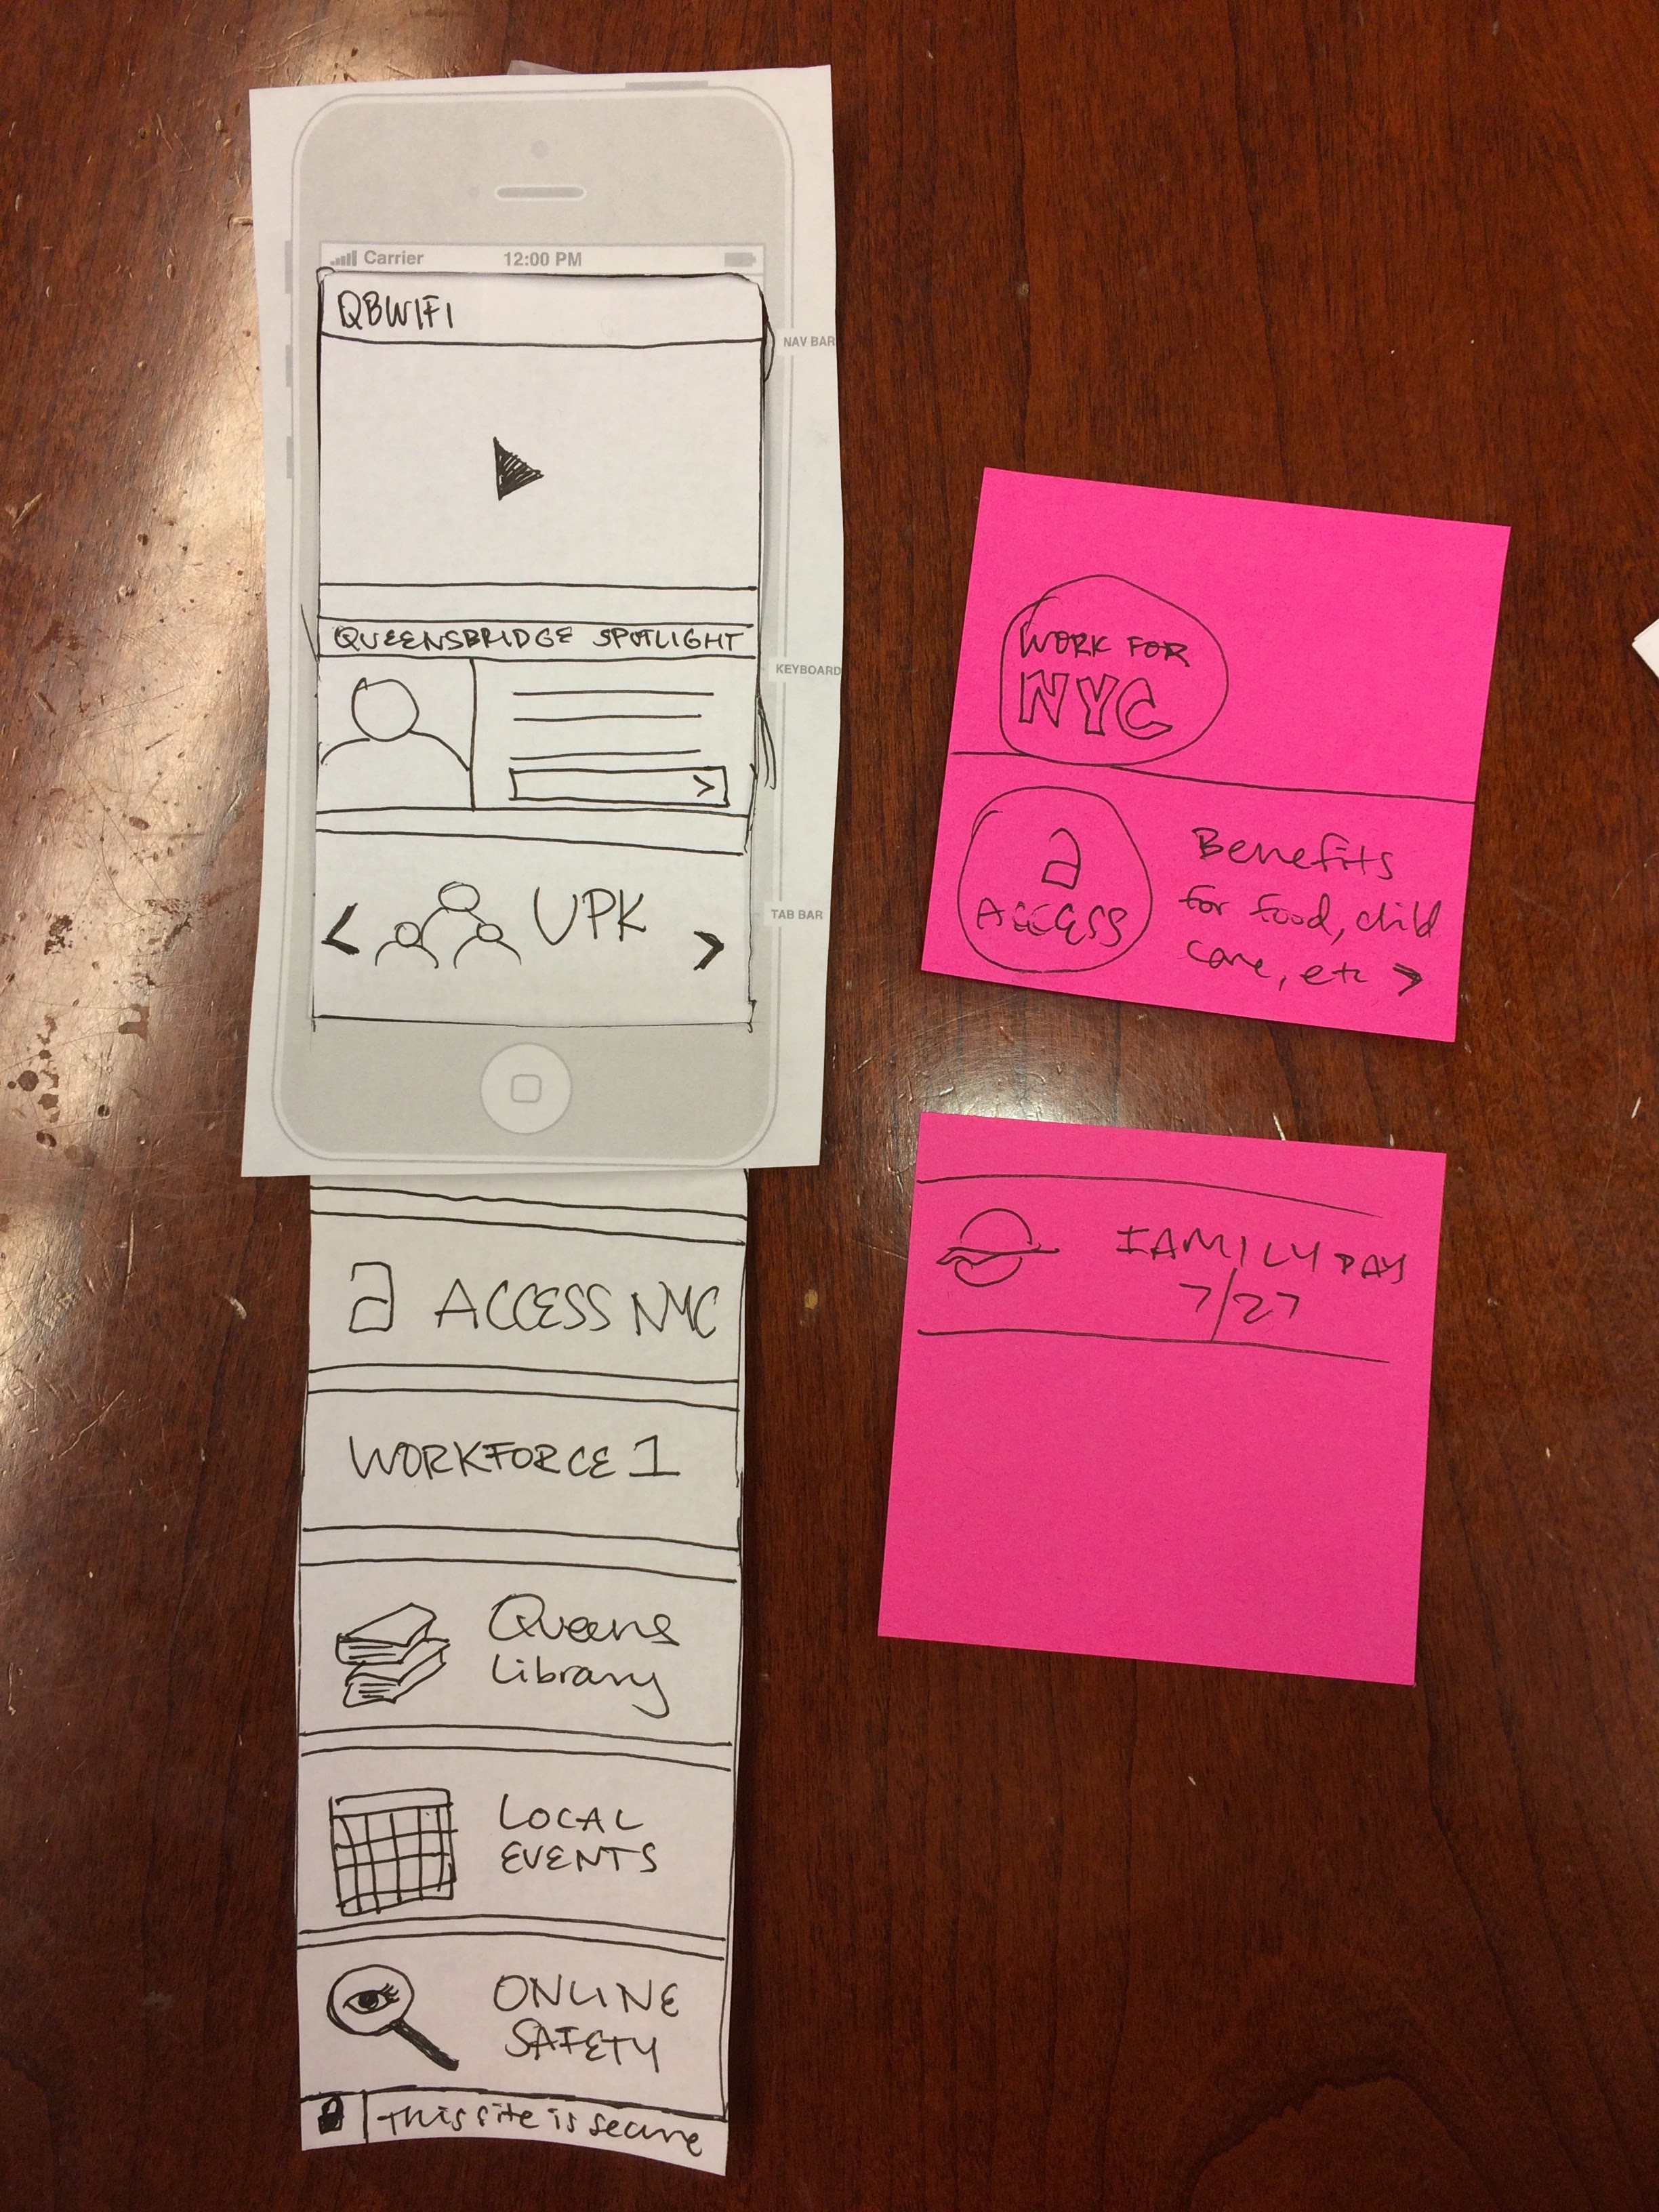 Carrier 12:00 PM
QBWIFI
NAV BAR
QUEENSBRIDGE SPOTLIGHT
KEYBOARD
>
TAB BAR
< UPK >
a ACCESS NYC
WORKFORCE 1
Queens
Library
LOCAL
EVENTS
ONLINE
SAFETY
This site is secure
WORK FOR
NYC
a
ACCESS
Benefits
for food, child
care, etc >
FAMILY DAY
7/27